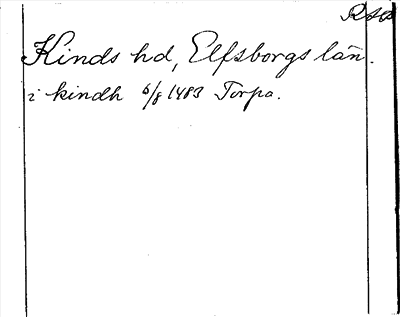 Kinds hd, Elfsborgs län.
i kindh 6/8 1483 Torpa.